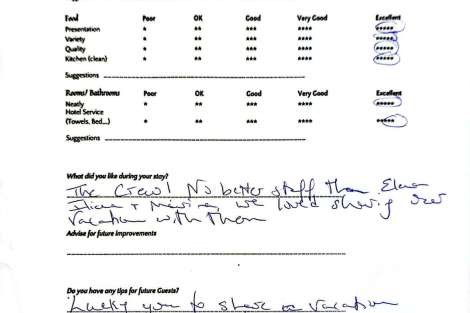 Food Poor OK Good Very Good Excellent
Presentation * ** *** **** *****
Variety * ** *** **** *****
Quality * ** *** **** *****
Kitchen (clean) * ** *** **** *****
Suggestions
Rooms/ Bathrooms Poor OK Good Very Good Excellent
Neatly * ** *** **** *****
Hotel Service
(Towels, Bed...) * ** *** **** *****
Suggestions
What did you like during your stay?
The Crew! No better staff than
+ we loved sharing our
Vacation with them
Advise for future improvements
Do you have any tips for future Guests?
Lucky you to share a vacation